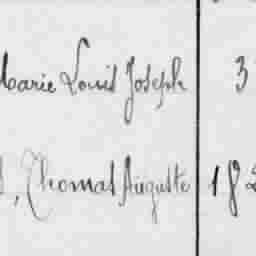 Marie Louis Joseph 3
, Thomas Auguste 182